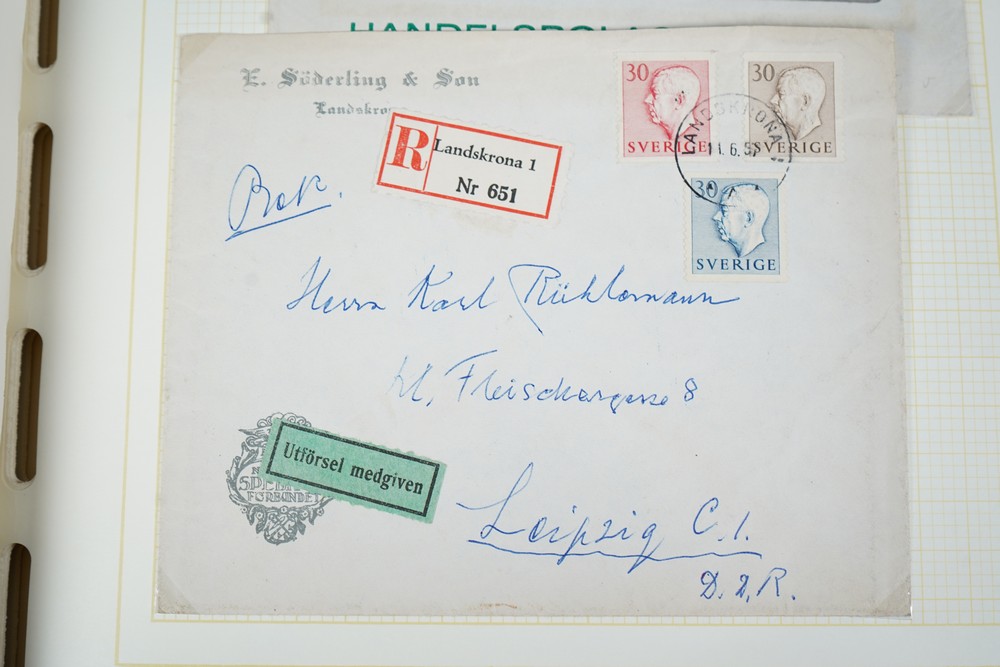 E. Söderling & Son
Landskro
R
Landskrona 1
Nr 651
30
SVERIGE
30
SVERIGE
LANDSKRONA
11.6.57
30
SVERIGE
Rek.
Herrn Karl Rühlemann
kl. Fleischergasse 8
Utförsel medgiven
FÖRBUNDET
Leipzig C.1.
D.D.R.